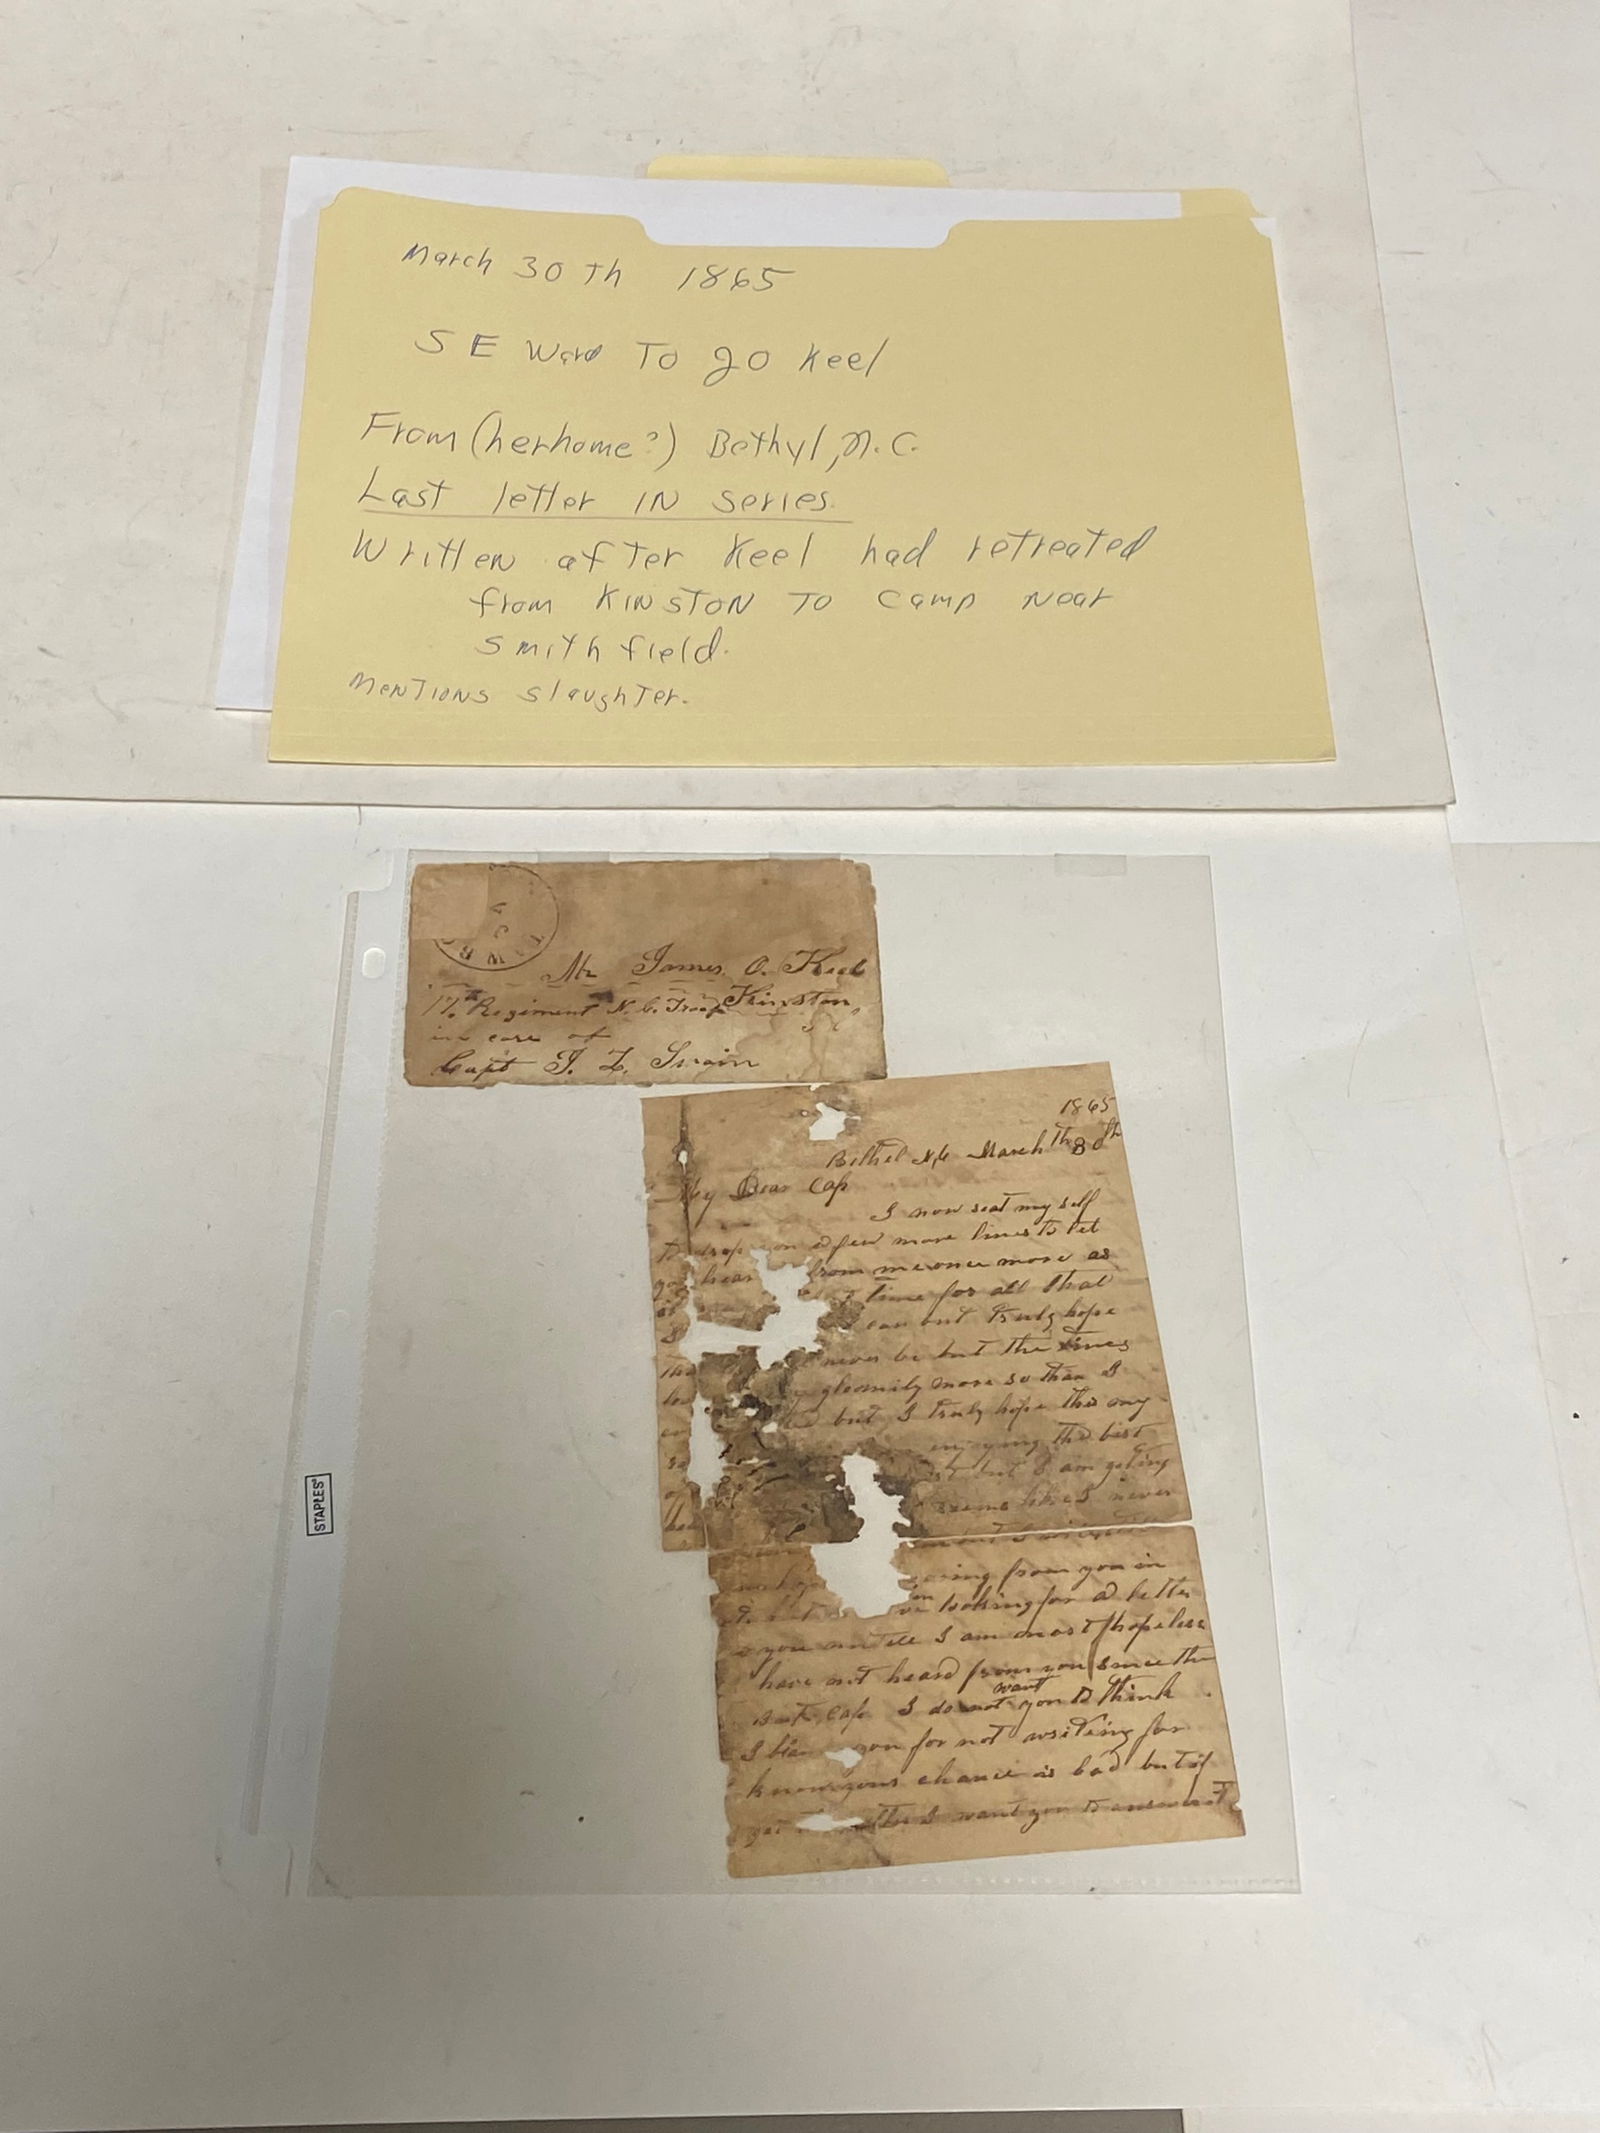 March 30 Th 1865
S E Ward To JO Keel
From (her home?) Bethyl, N.C.
Last letter IN series.
Written after Keel had retreated
from KINSTON TO Camp Near
Smithfield.
Mentions slaughter.
Mr James O. Keel
17th Regiment N. C. Troop Kinston,
in care of
Capt J. L. Swain
STAPLES
1865
Bethel N,C March Th 30th
My Dear Cap
I now seat my self
To drop you a few more lines to let
you hear from me once more as
time for all that
I can but Truly hope
never be but the times
gloomily more so than I
but I truly hope this may
enjoying the best
but I am geting
seems like I never
from you in
looking for a letter
you untill I am most hopeless
have not heard from you since the
But Cap I do not want you to think
I blame you for not writing for
know your chance is bad but if
get I want you to answer it